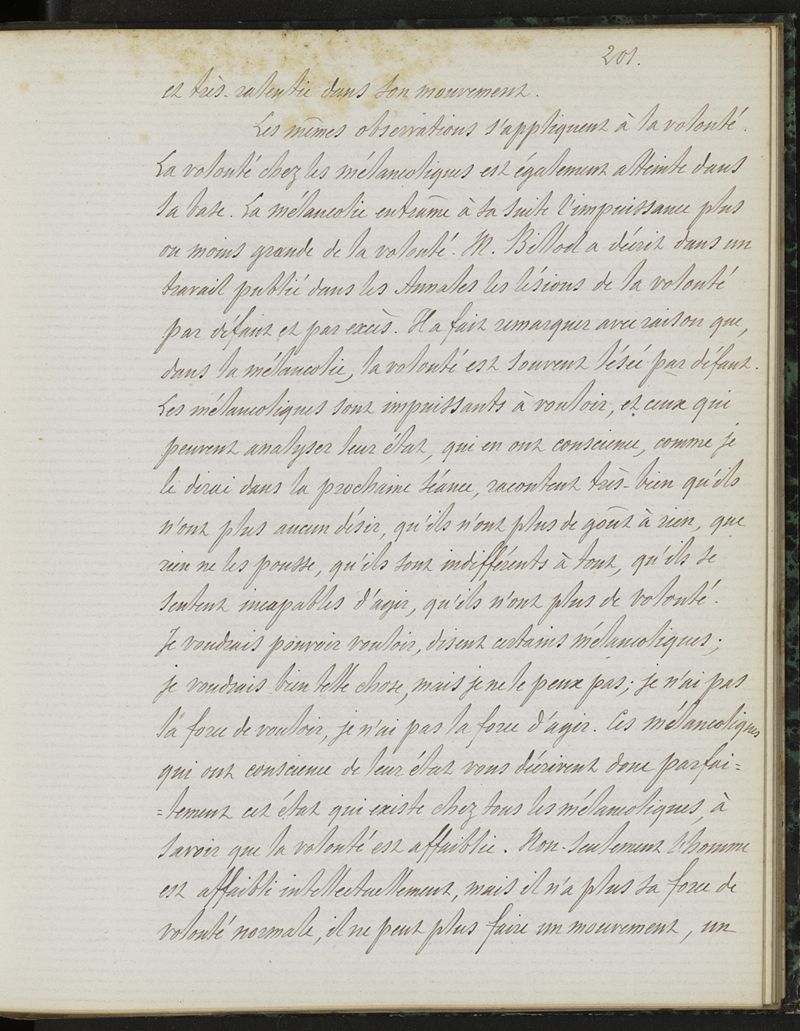 201.
et très-ralentie dans son mouvement.
Les mêmes observations s'appliquent à la volonté.
La volonté chez les mélancoliques est également atteinte dans
sa base. La mélancolie entraîne à sa suite l'impuissance plus
ou moins grande de la volonté. M. Billod a décrit dans un
travail publié dans les Annales les lésions de la volonté
par défaut et par excès. Il a fait remarquer avec raison que,
dans la mélancolie, la volonté est souvent lésée par défaut.
Les mélancoliques sont impuissants à vouloir, et ceux qui
peuvent analyser leur état, qui en ont conscience, comme je
le dirai dans la prochaine séance, racontent très-bien qu'ils
n'ont plus aucun désir, qu'ils n'ont plus de goût à rien, que
rien ne les pousse, qu'ils sont indifférents à tout, qu'ils se
sentent incapables d'agir, qu'ils n'ont plus de volonté.
Je voudrais pouvoir vouloir, disent certains mélancoliques;
je voudrais bien telle chose, mais je ne le peux pas; je n'ai pas
la force de vouloir, je n'ai pas la force d'agir. Ces mélancoliques
qui ont conscience de leur état vous décrivent donc parfai=
=tement cet état qui existe chez tous les mélancoliques, à
savoir que la volonté est affaiblie. Non-seulement l'homme
est affaibli intellectuellement, mais il n'a plus sa force de
volonté normale, il ne peut plus faire un mouvement, un